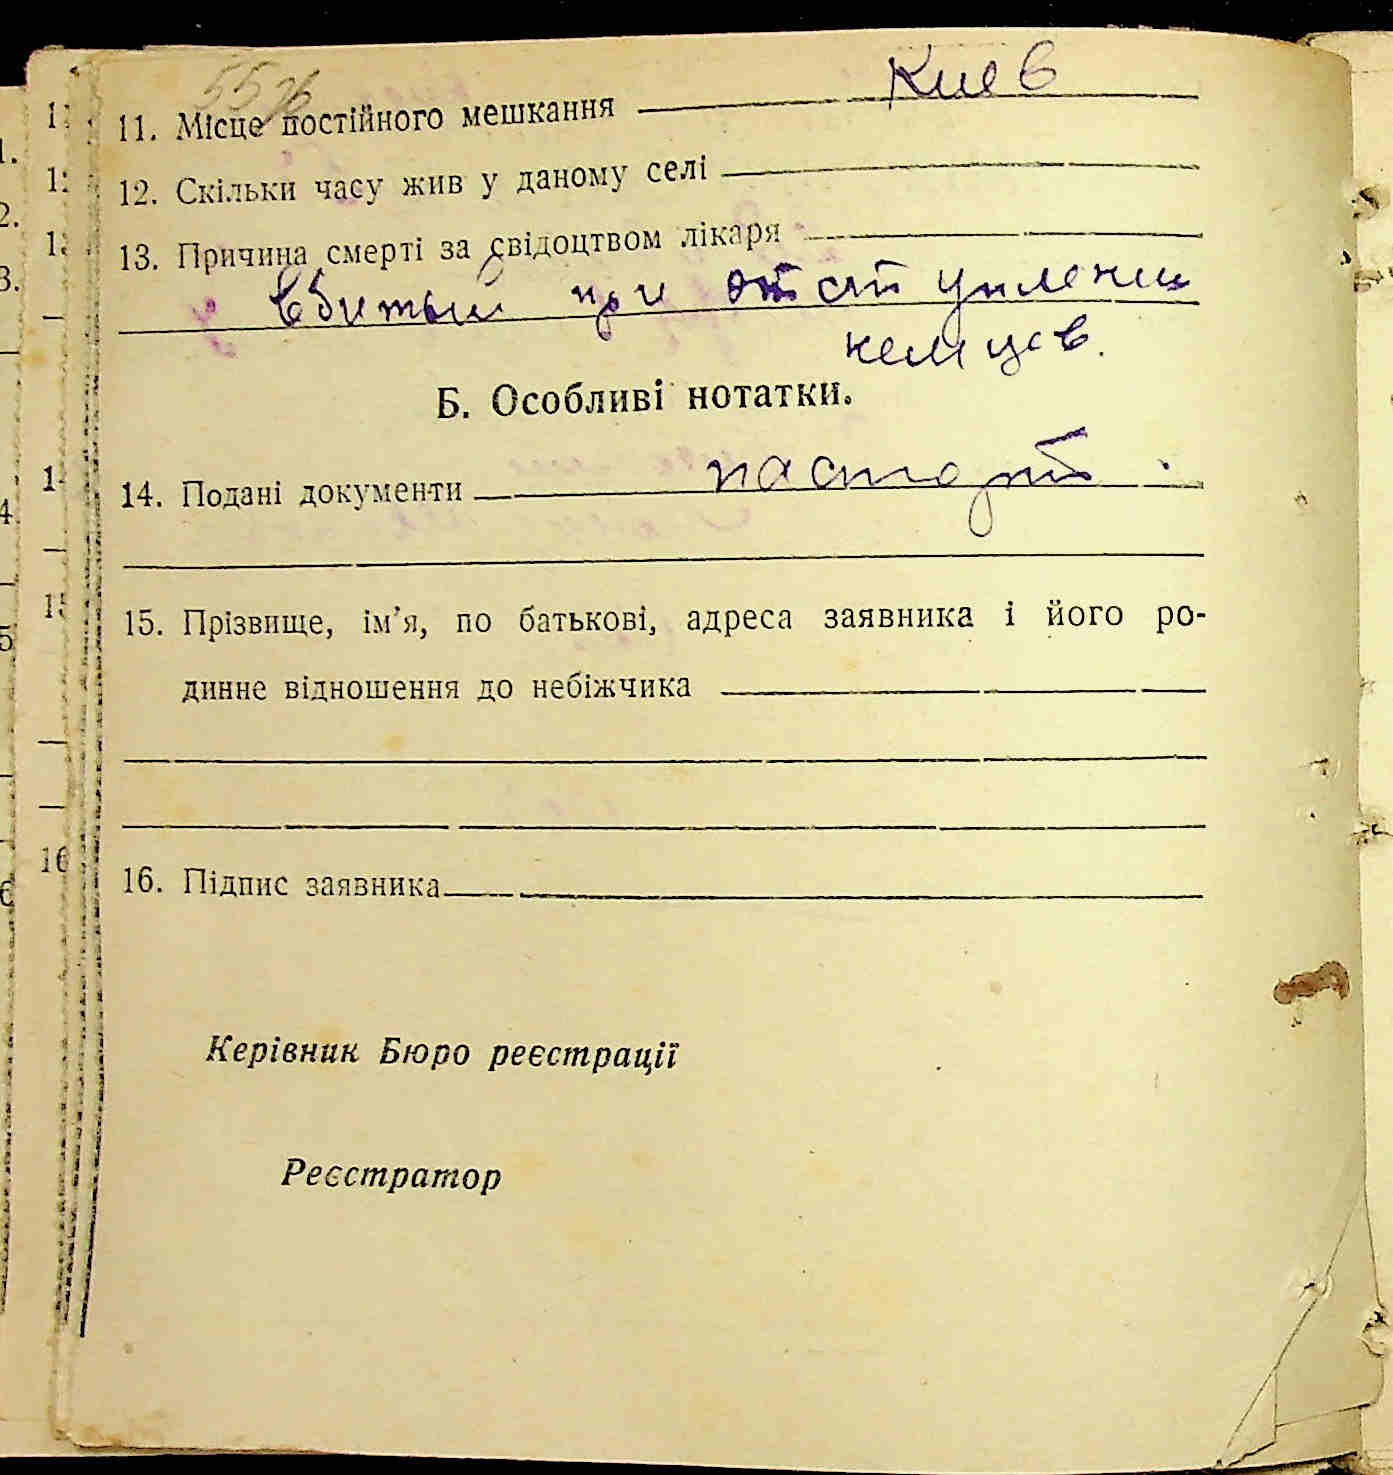 5526
11. Місце постійного мешкання Киев
12. Скільки часу жив у даному селі
13. Причина смерті за свідоцтвом лікаря
Вбитый при отступлении
немцев.
Б. Особливі нотатки.
14. Подані документи паспорт.
15. Прізвище, ім'я, по батькові, адреса заявника і його ро-
динне відношення до небіжчика
16. Підпис заявника
Керівник Бюро реєстрації
Реєстратор